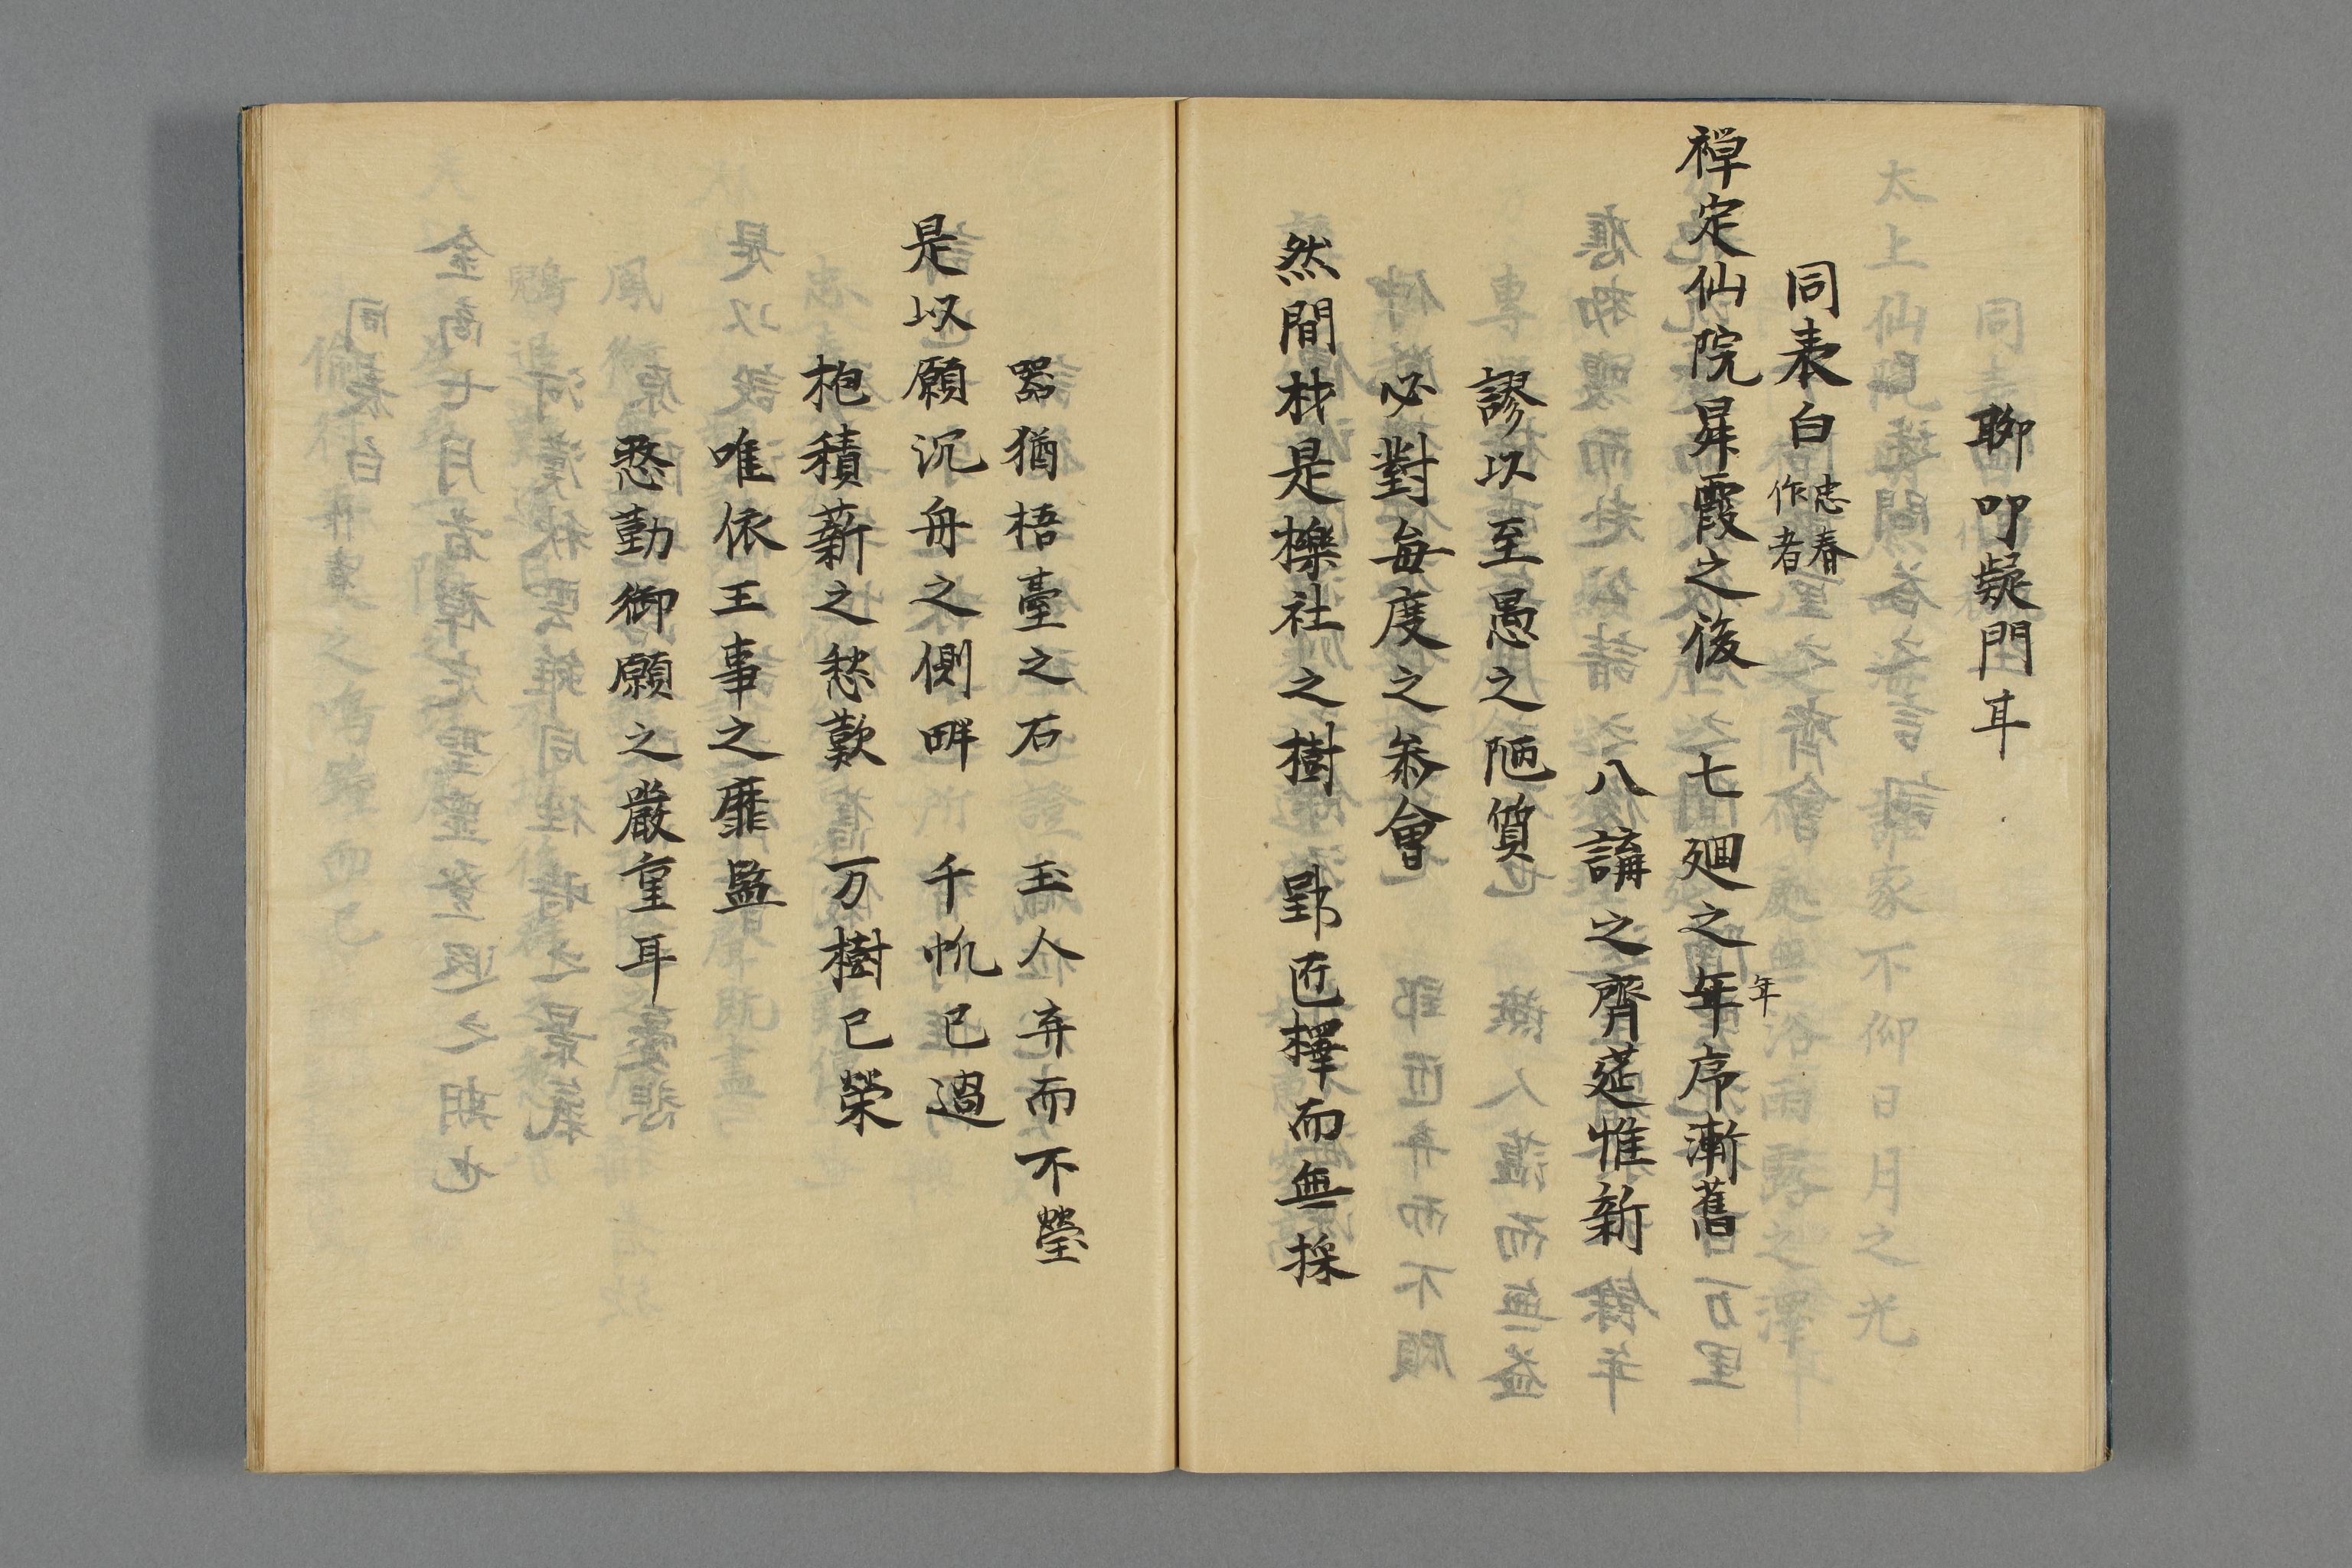 聊叩疑門耳
同表白 忠春作者
禅定仙院昇霞之後 七廻之年年序漸舊
八講之齊莚惟新
謬以至愚之陋質
必對每度之叅會
然間材是櫟社之樹 郢匠擇而無採
器猶梧臺之石 玉人弃而不瑩
是以願沉舟之側畔 千帆已過
抱積薪之愁歎 万樹已榮
唯依王事之靡盬
憗勤御願之嚴重耳